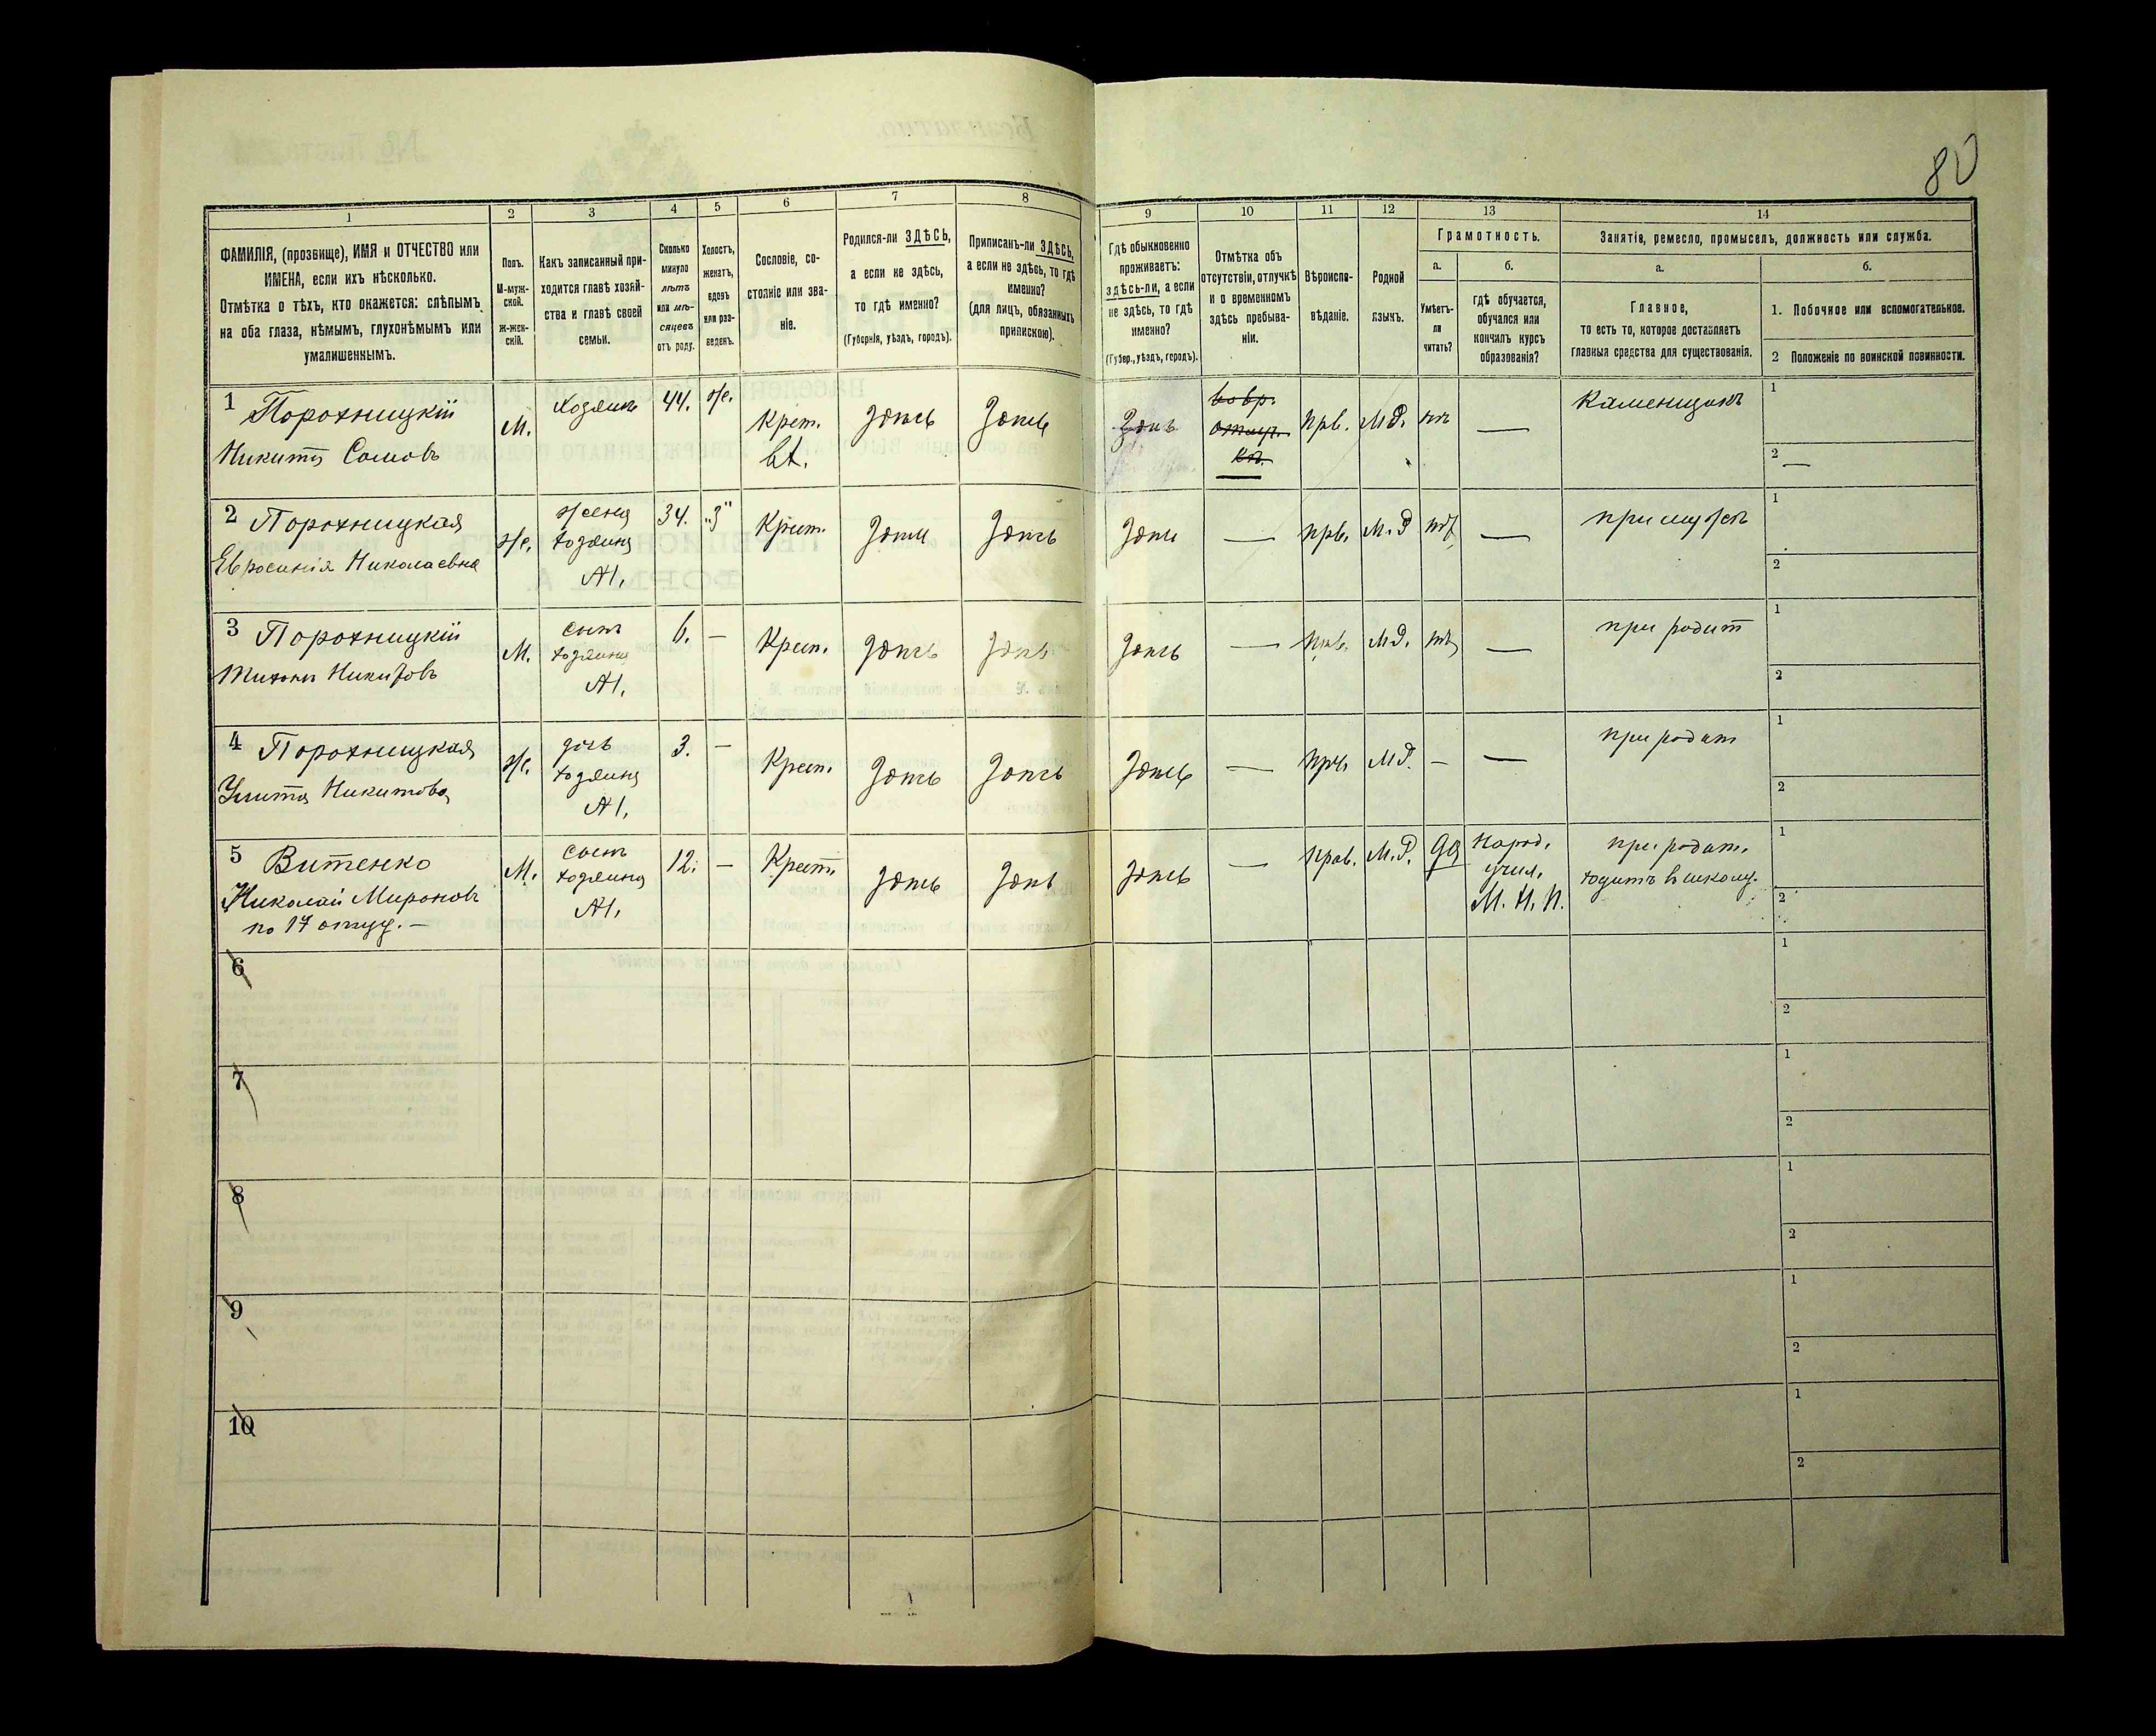 80
1
2
3
4
5
6
7
8
9
10
11
12
13
14
ФАМИЛІЯ, (прозвище), ИМЯ и ОТЧЕСТВО или
ИМЕНА, если ихъ нѣсколько.
Отмѣтка о тѣхъ, кто окажется: слѣпымъ
на оба глаза, нѣмымъ, глухонѣмымъ или
умалишеннымъ.
Полъ.
М-муж-
ской.
Ж-жен-
скій.
Какъ записанный при-
ходится главѣ хозяй-
ства и главѣ своей
семьи.
Сколько
минуло
лѣтъ
или мѣ-
сяцевъ
отъ роду.
Холостъ,
женатъ,
вдовъ
или раз-
веденъ.
Сословіе, со-
стояніе или зва-
ніе.
Родился-ли ЗДѢСЬ,
а если не здѣсь,
то гдѣ именно?
(Губернія, уѣздъ, городъ).
Приписанъ-ли ЗДѢСЬ,
а если не здѣсь, то гдѣ
именно?
(для лицъ, обязанныхъ
припискою).
Гдѣ обыкновенно
проживаетъ:
здѣсь-ли, а если
не здѣсь, то гдѣ
именно?
(Губер., уѣздъ, городъ).
Отмѣтка объ
отсутствіи, отлучкѣ
и о временномъ
здѣсь пребыва-
ніи.
Вѣроиспо-
вѣданіе.
Родной
языкъ.
Грамотность.
а.
б.
Умѣетъ-
ли
читать?
гдѣ обучается,
обучался или
кончилъ курсъ
образованія?
Занятіе, ремесло, промыселъ, должность или служба.
а.
б.
Главное,
то есть то, которое доставляетъ
главныя средства для существованія.
1. Побочное или вспомогательное.
2 Положеніе по воинской повинности.
1 Порохницкій
Никита
М.
Хозяинъ
44.
ж.
Крест.
Здѣсь
Здѣсь
Здѣсь
Прв.
М.Р.
нѣтъ
—
Каменщикъ
1
2 —
2 Порохницкая
Евросинія Николаевна
ж.
жена
хозяина
№1.
34.
„З"
Крест.
Здѣсь
Здѣсь
Здѣсь
—
прв.
М.Р
нѣт
—
при мужѣ
1
2
3 Порохницкій
Тихонъ Никитовъ
М.
сынъ
хозяина
№1.
6.
—
Крест.
Здѣсь
Здѣсь
Здѣсь
—
Прв.
М.Р.
нѣт
—
при родит
1
2
4 Порохницкая
Улита Никитова
ж.
дочь
хозяина
№1.
3.
—
Крест.
Здѣсь
Здѣсь
Здѣсь
—
Прв
М.Р.
—
—
при родит
1
2
5 Витенко
Николай Мироновъ
М.
сынъ
хозяина
№1.
12.
—
Крест.
Здѣсь
Здѣсь
Здѣсь
—
Прав.
М.Р.
да
Народ.
учил.
М. Н. П.
при родит.
ходитъ в школу.
1
2
6
1
2
7
1
2
8
1
2
9
1
2
10
1
2